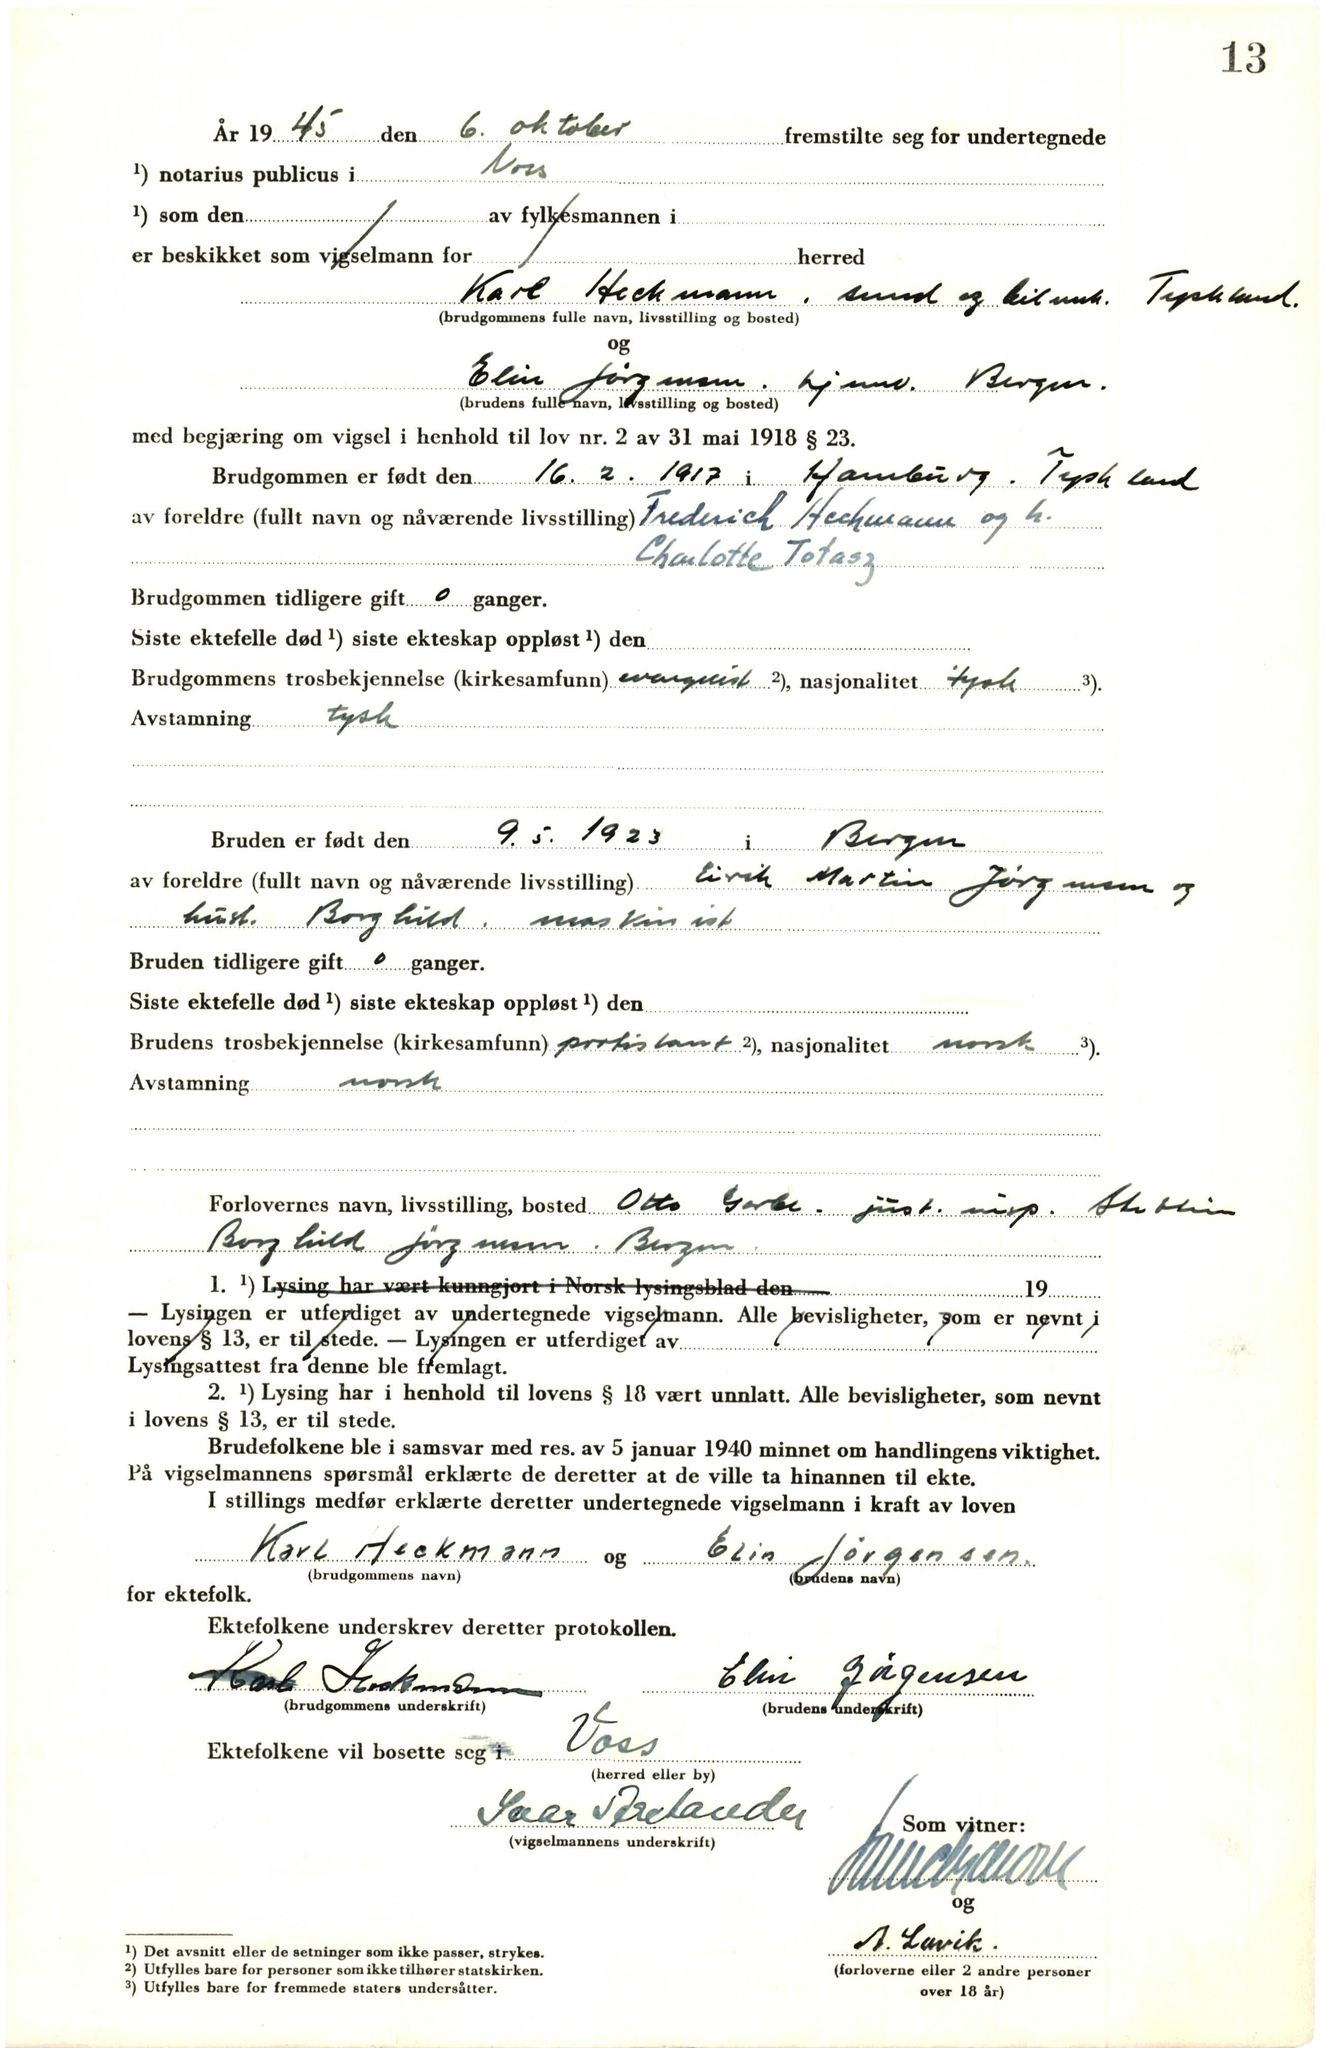 13
År 1945 den 6. oktober fremstilte seg for undertegnede
1) notarius publicus i Voss
1) som den av fylkesmannen i
er beskikket som vigselmann for herred
Karl Heckmann. smed og bilmek. Tyskland.
(brudgommens fulle navn, livsstilling og bosted)
og
Elin Jørgensen. hjemv. Bergen.
(brudens fulle navn, livsstilling og bosted)
med begjæring om vigsel i henhold til lov nr. 2 av 31 mai 1918 § 23.
Brudgommen er født den 16. 2. 1917 i Hamburg. Tyskland
av foreldre (fullt navn og nåværende livsstilling) Frederich Heckmann og h.
Charlotte Totasz
Brudgommen tidligere gift 0 ganger.
Siste ektefelle død 1) siste ekteskap oppløst 1) den
Brudgommens trosbekjennelse (kirkesamfunn) evangelist 2), nasjonalitet tysk 3).
Avstamning tysk
Bruden er født den 9. 5. 1923 i Bergen
av foreldre (fullt navn og nåværende livsstilling) Eirik Martin Jørgensen og
hust. Borghild. maskinist
Bruden tidligere gift 0 ganger.
Siste ektefelle død 1) siste ekteskap oppløst 1) den
Brudens trosbekjennelse (kirkesamfunn) protistant 2), nasjonalitet norsk 3).
Avstamning norsk
Forlovernes navn, livsstilling, bosted Otto just. insp. Stettin
Borghild Jørgensen. Bergen.
1. 1) Lysing har vært kunngjort i Norsk lysingsblad den 19
— Lysingen er utferdiget av undertegnede vigselmann. Alle bevisligheter, som er nevnt i
lovens § 13, er til stede. — Lysingen er utferdiget av
Lysingsattest fra denne ble fremlagt.
2. 1) Lysing har i henhold til lovens § 18 vært unnlatt. Alle bevisligheter, som nevnt
i lovens § 13, er til stede.
Brudefolkene ble i samsvar med res. av 5 januar 1940 minnet om handlingens viktighet.
På vigselmannens spørsmål erklærte de deretter at de ville ta hinannen til ekte.
I stillings medfør erklærte deretter undertegnede vigselmann i kraft av loven
Karl Heckmann og Elin Jörgensen.
(brudgommens navn) (brudens navn)
for ektefolk.
Ektefolkene underskrev deretter protokollen.
Karl Heckmann Elin Jörgensen
(brudgommens underskrift) (brudens underskrift)
Ektefolkene vil bosette seg i Voss
(herred eller by)
(vigselmannens underskrift)
Som vitner:
og
A. Lavik.
(forloverne eller 2 andre personer
over 18 år)
1) Det avsnitt eller de setninger som ikke passer, strykes.
2) Utfylles bare for personer som ikke tilhører statskirken.
3) Utfylles bare for fremmede staters undersåtter.